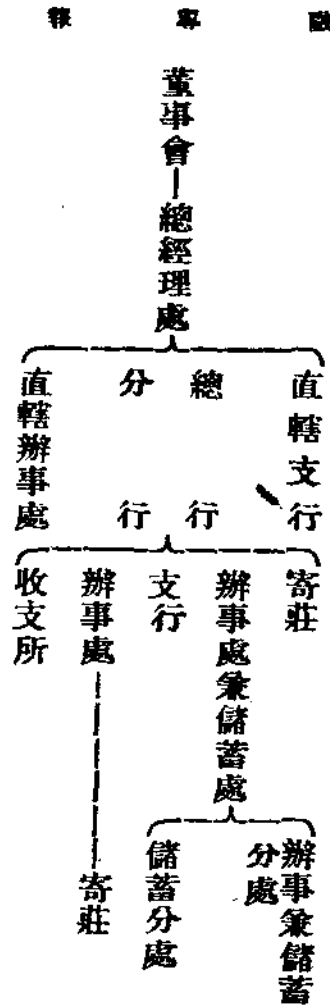 董事會—總經理處
直轄支行
總行
分行
直轄辦事處
寄莊
辦事處兼儲蓄處
支行
辦事處——寄莊
收支所
辦事兼儲蓄
分處
儲蓄分處